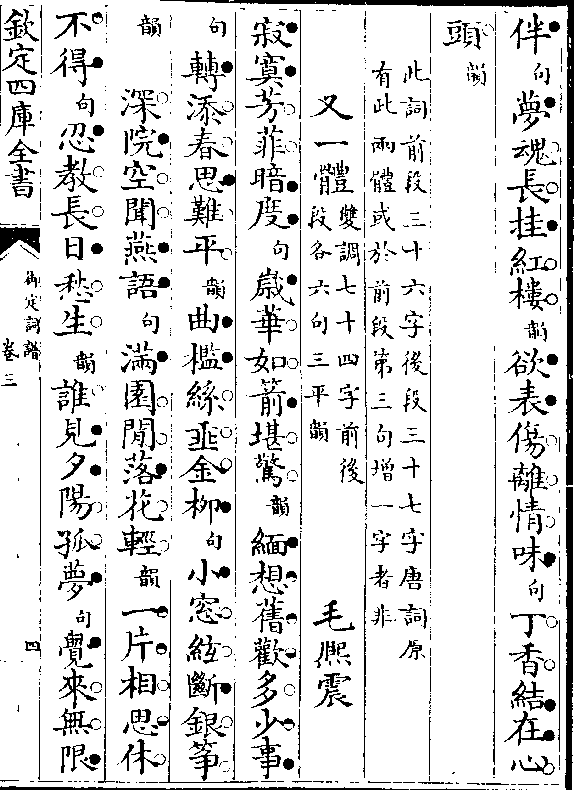 伴句夢魂長挂紅樓韻欲表傷離情味句丁香結在心
頭韻
此詞前段三十六字後段三十七字唐詞原
有此兩體或於前段第三句增一字者非
又一體雙調七十四字前後
段各六句三平韻
毛熈震
寂寞芳菲暗度句嵗華如箭堪驚韻緬想舊歡多少事
句轉添春思難平韻曲檻絲垂金柳句小窓絃斷銀箏
韻深院空聞燕語句滿園閒落花輕韻一片相思休
不得句忍教長日愁生韻誰見夕陽孤夢句覺來無限
欽定四庫全書
御定詞譜
卷三
四